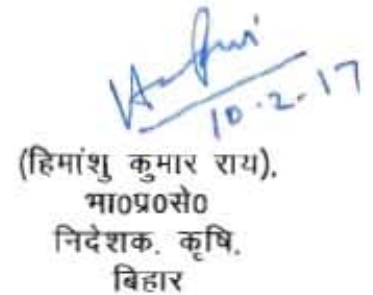 10.2.17
(हिमांशु कुमार राय),
भा0प्र0से0
निदेशक, कृषि,
बिहार